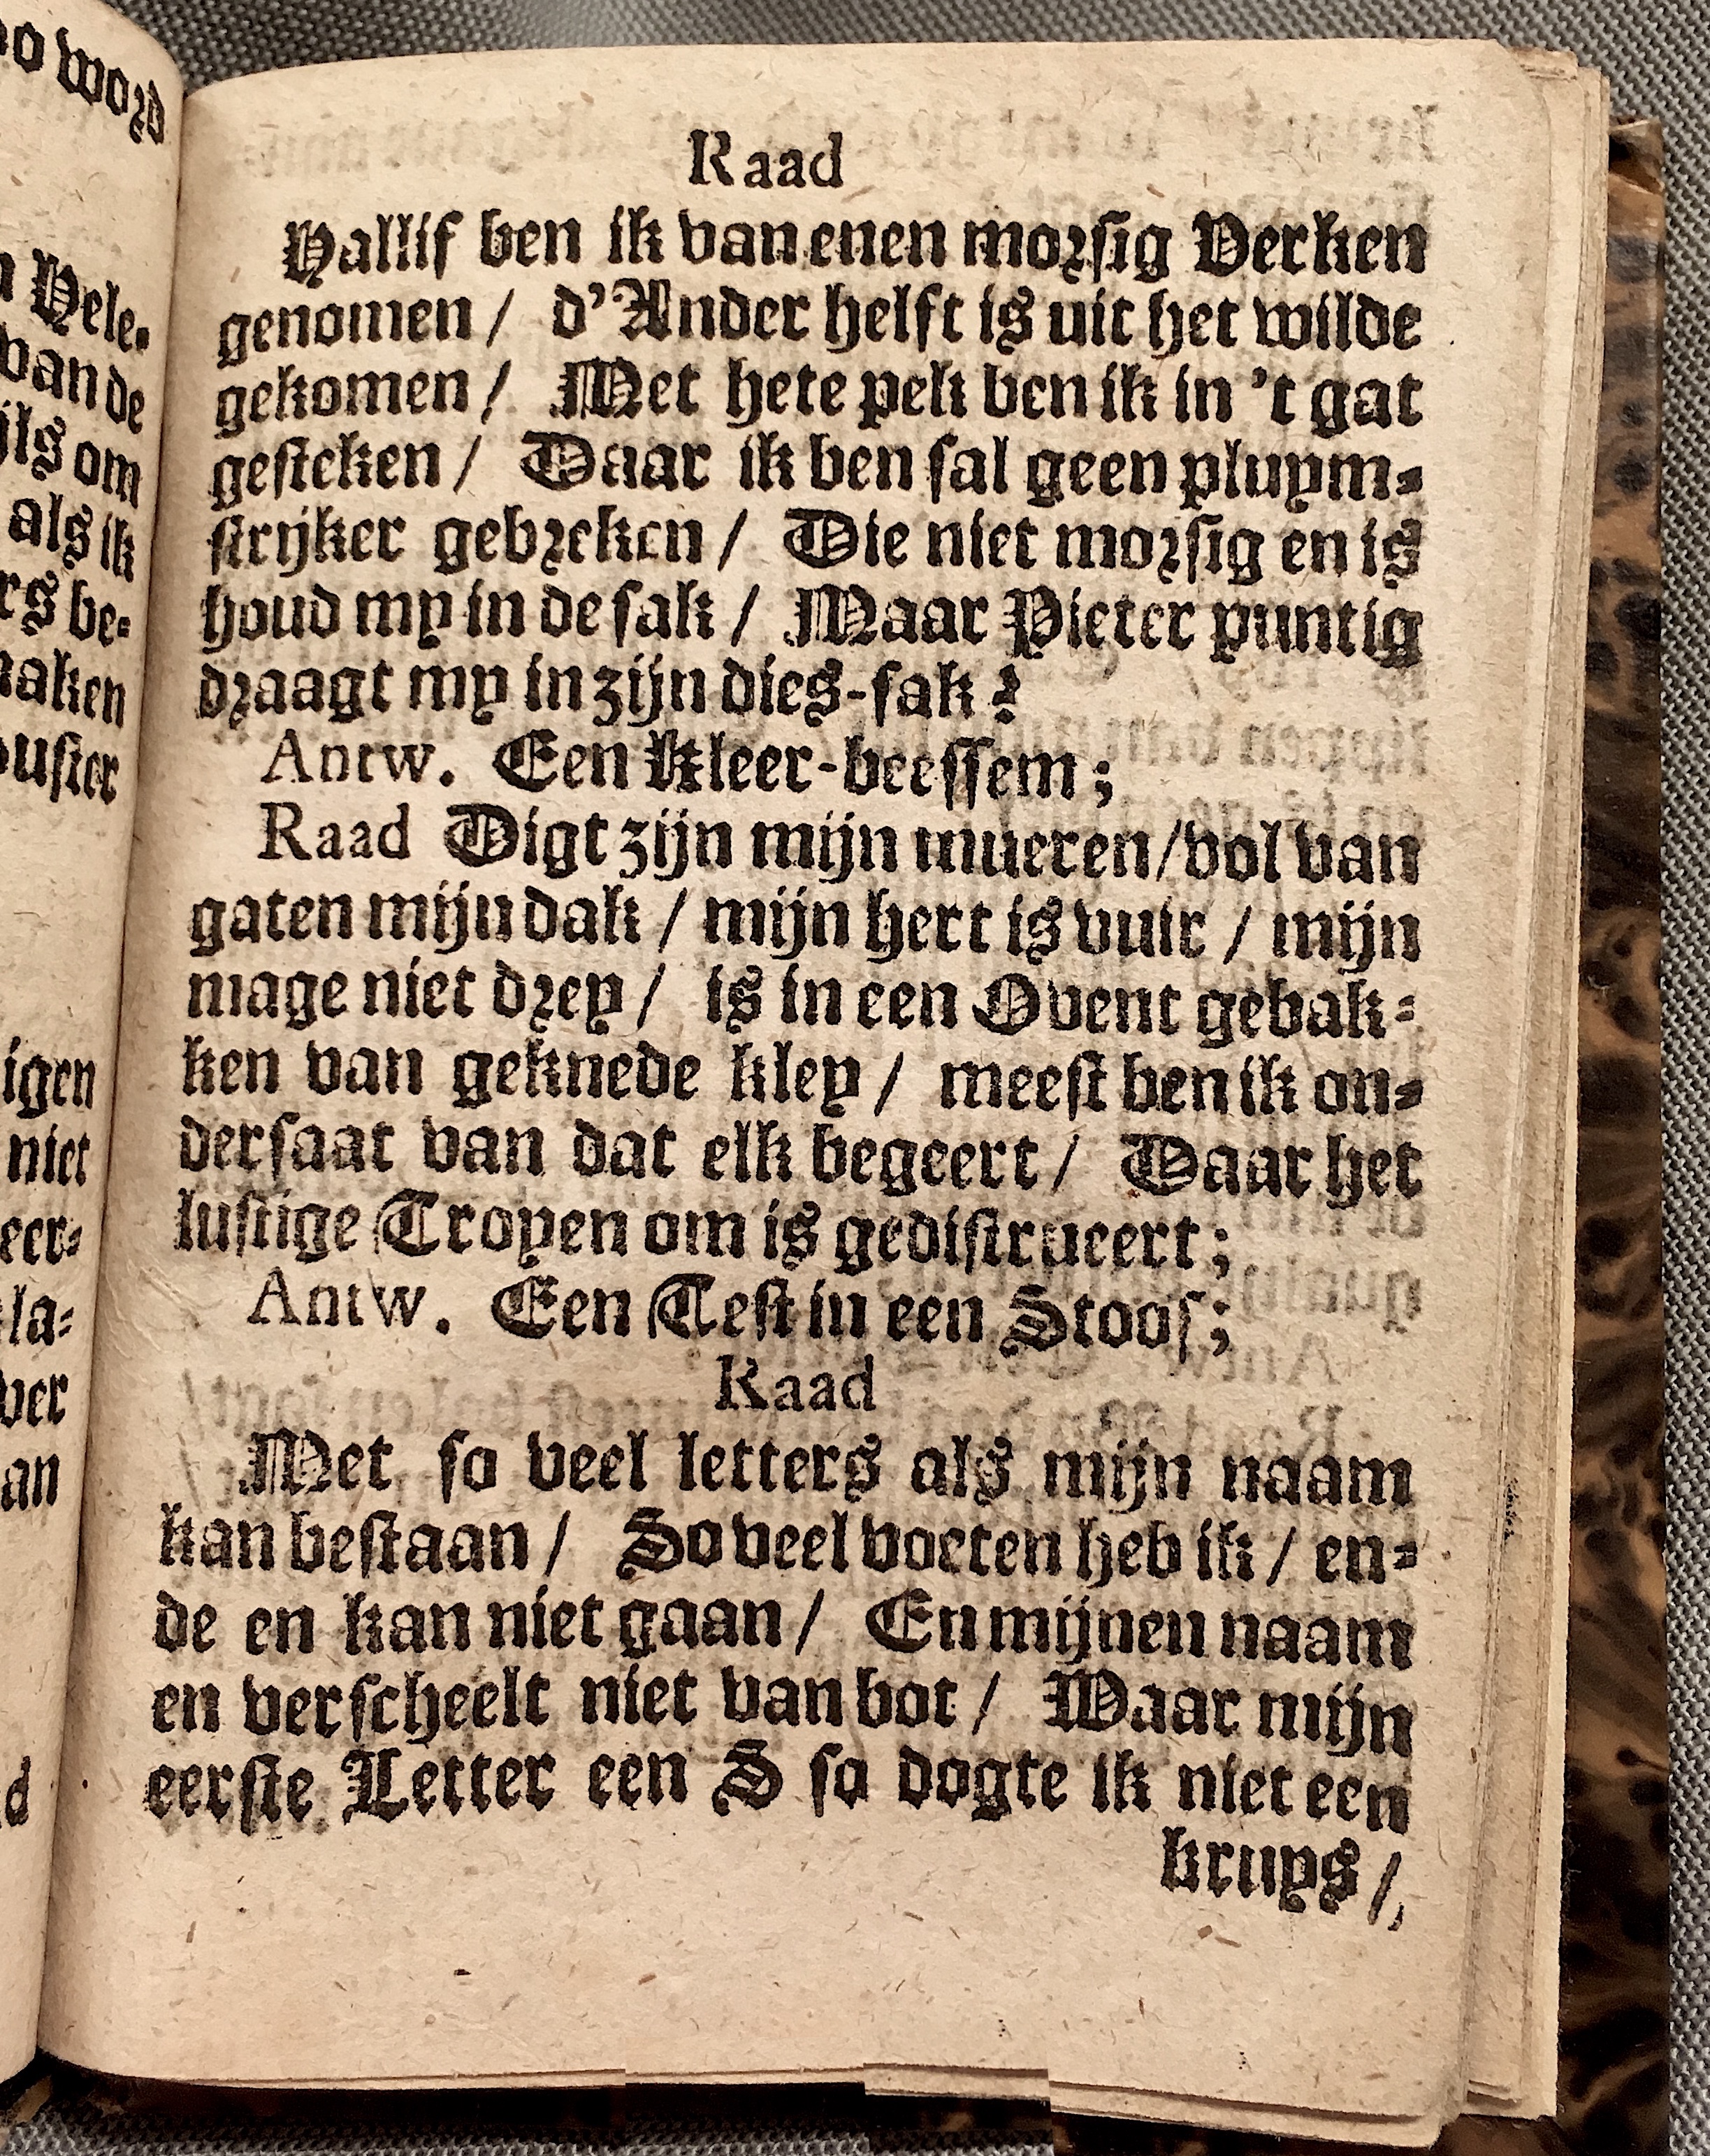 Raad
Hallif ben ik van enen morsig Verken
genomen / d'Ander helft is uit het wilde
gekomen / Met hete pek ben ik in 't gat
gesteken / Daar ik ben sal geen pluym-
strijker gebreken / Die niet morsig en is
houd my in de sak / Maar Pieter puntig
draagt my in zijn dies-sak?
Antw. Een Kleer-beessem;
Raad Digt zijn mijn mueren / vol van
gaten mijn dak / mijn hert is vuir / mijn
mage niet drey / is in een Ovent gebak-
ken van geknede kley / meest ben ik on-
dersaat van dat elk begeert / Daar het
lustige Troyen om is gedistrueert;
Antw. Een Test in een Stoof;
Raad
Met so veel letters als mijn naam
kan bestaan / So veel voeten heb ik / en-
de en kan niet gaan / En mijnen naam
en verscheelt niet van bot / Waar mijn
eerste Letter een S so dogte ik niet een
kruys /
o word
Hele-
van de
ijls om
als ik
rs be-
aken
uster
igen
niet
eer-
la-
ver
an
d